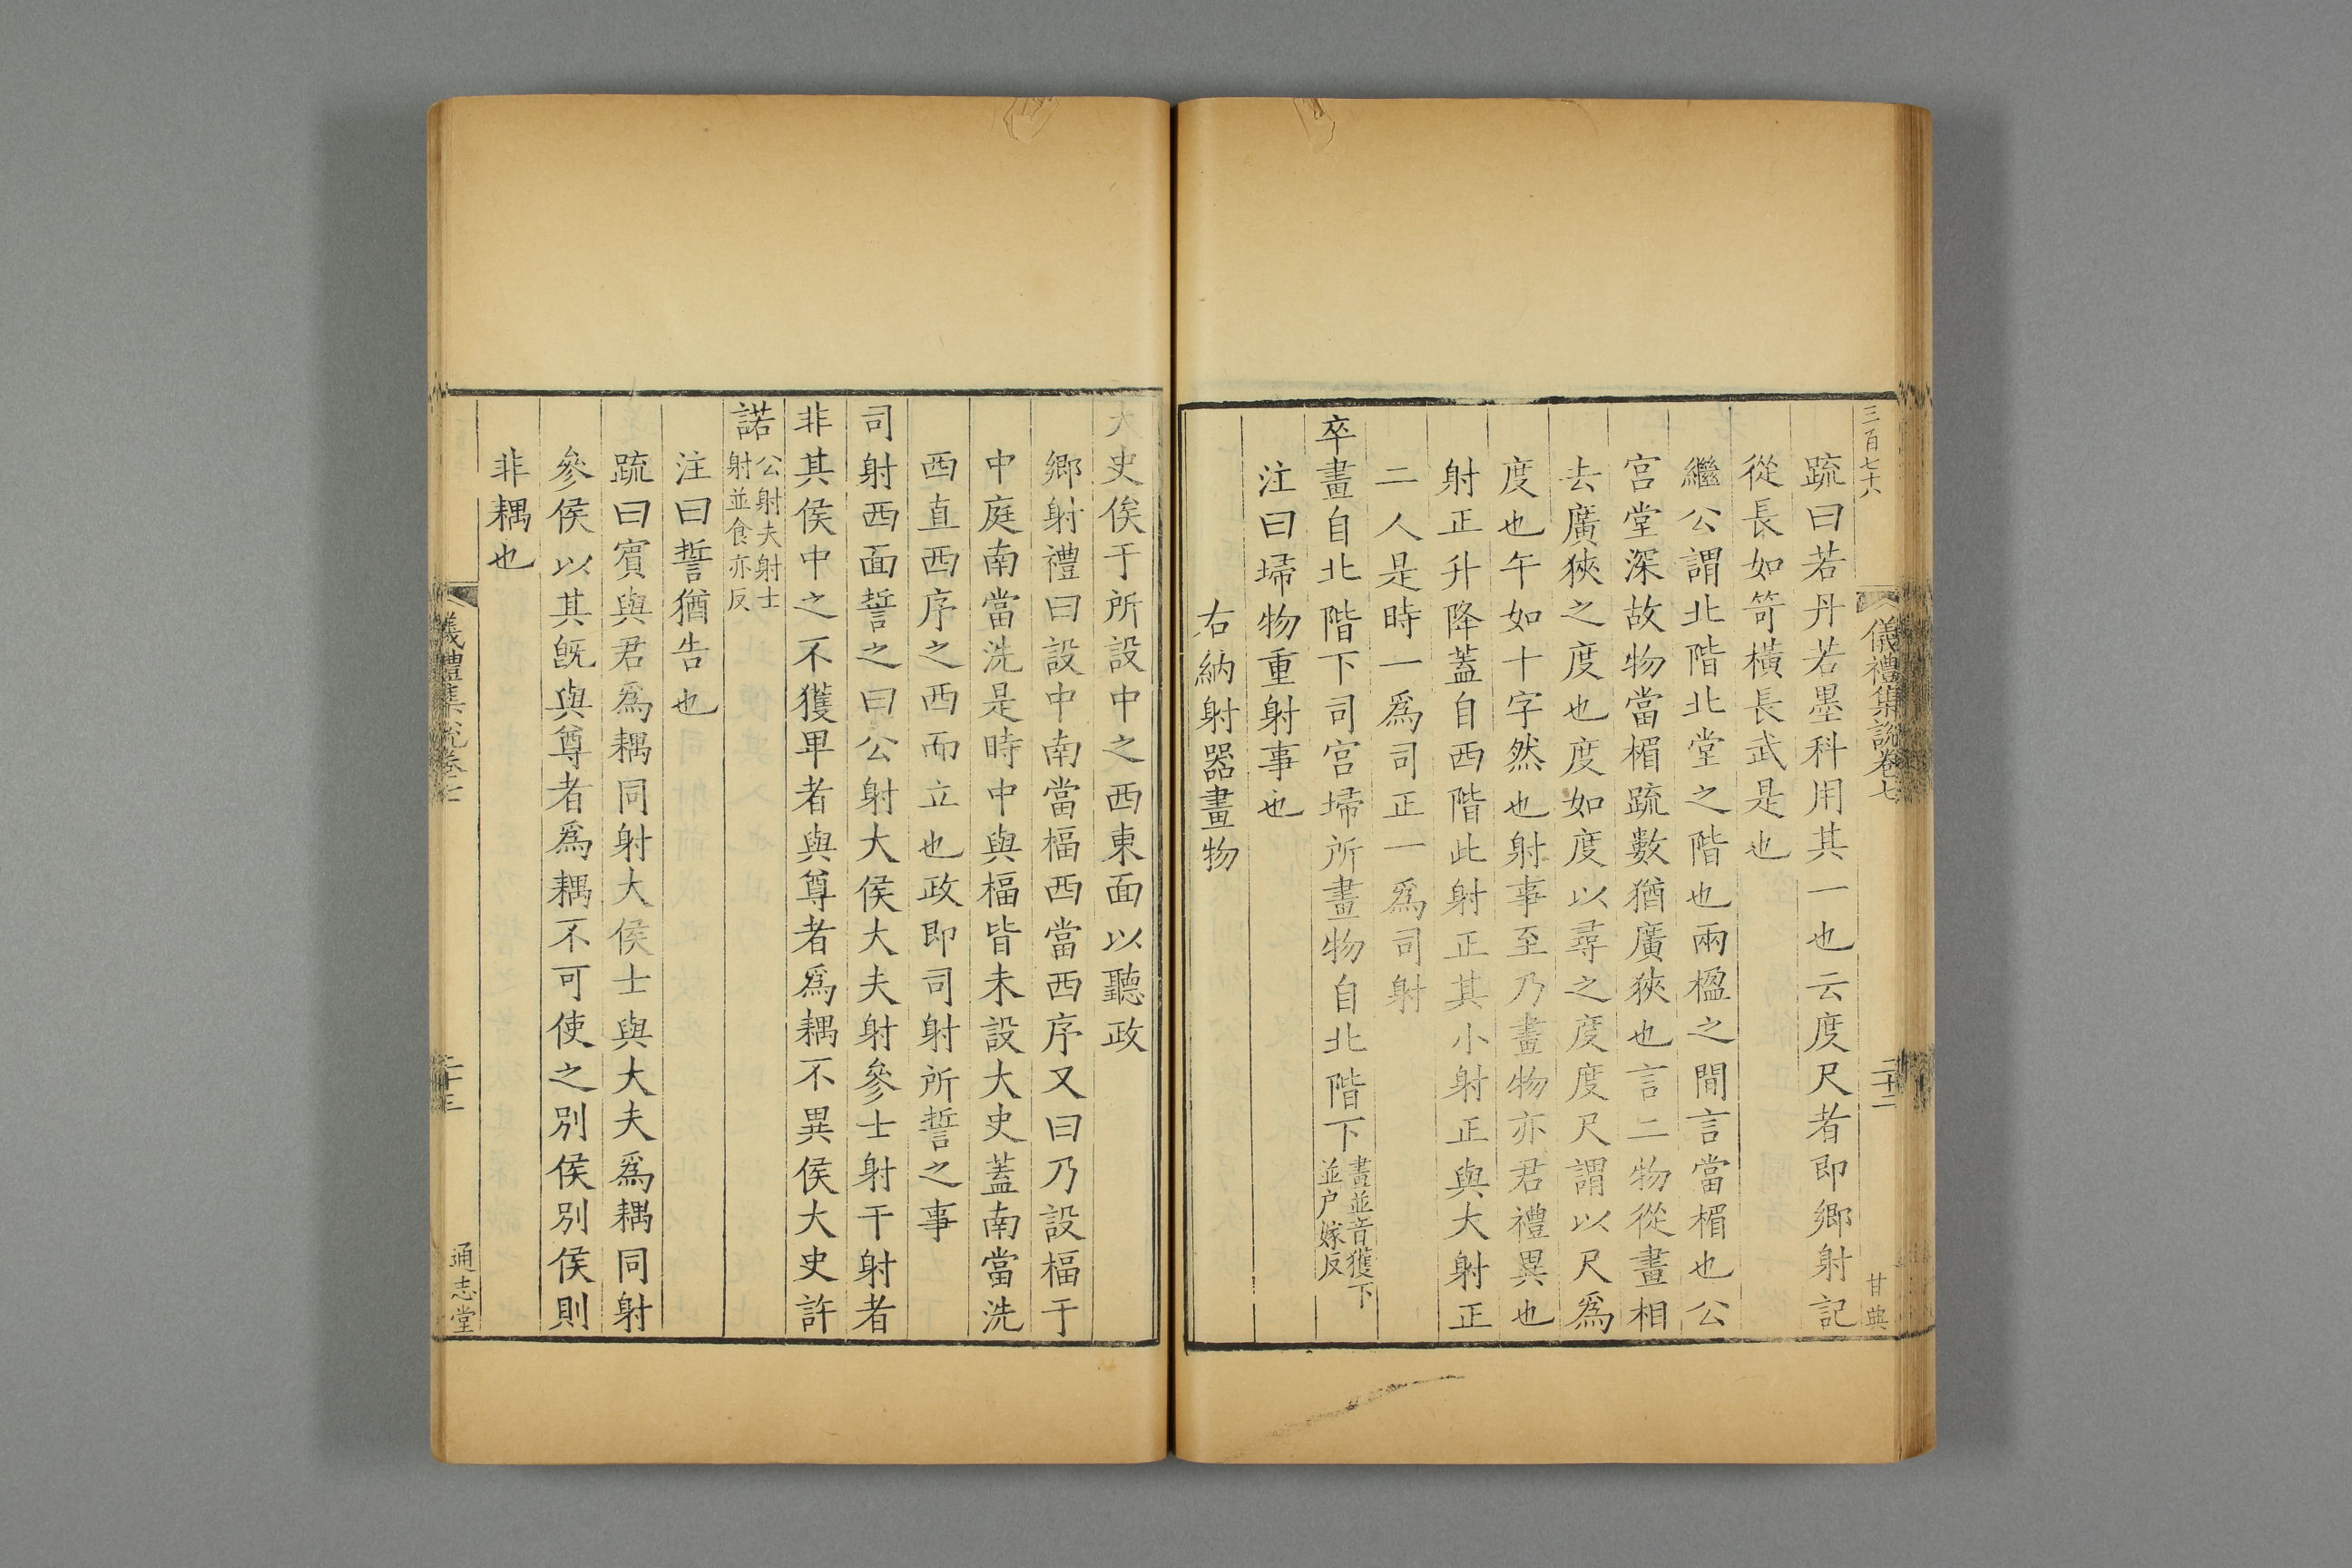 三百七十八
儀禮集說卷七
二十二
甘典
疏曰若丹若墨科用其一也云度尺者即鄉射記
從長如笴橫長武是也
繼公謂北階北堂之階也兩楹之間言當楣也公
宮堂深故物當楣疏數猶廣狹也言二物從畫相
去廣狹之度也度如度以尋之度度尺謂以尺爲
度也午如十字然也射事至乃畫物亦君禮異也
射正升降蓋自西階此射正其小射正與大射正
二人是時一爲司正一爲司射
卒畫自北階下司宮埽所畫物自北階下畫並音獲下
並户嫁反
注曰埽物重射事也
右納射器畫物
大史俟于所設中之西東面以聽政
鄉射禮曰設中南當楅西當西序又曰乃設楅于
中庭南當洗是時中與楅皆未設大史蓋南當洗
西直西序之西而立也政即司射所誓之事
司射西面誓之曰公射大侯大夫射參士射干射者
非其侯中之不獲卑者與尊者爲耦不異侯大史許
諾公射夫射士
射並食亦反
注曰誓猶告也
疏曰賓與君爲耦同射大侯士與大夫爲耦同射
參侯以其旣與尊者爲耦不可使之別侯別侯則
非耦也
儀禮集說卷七
二十三
通志堂